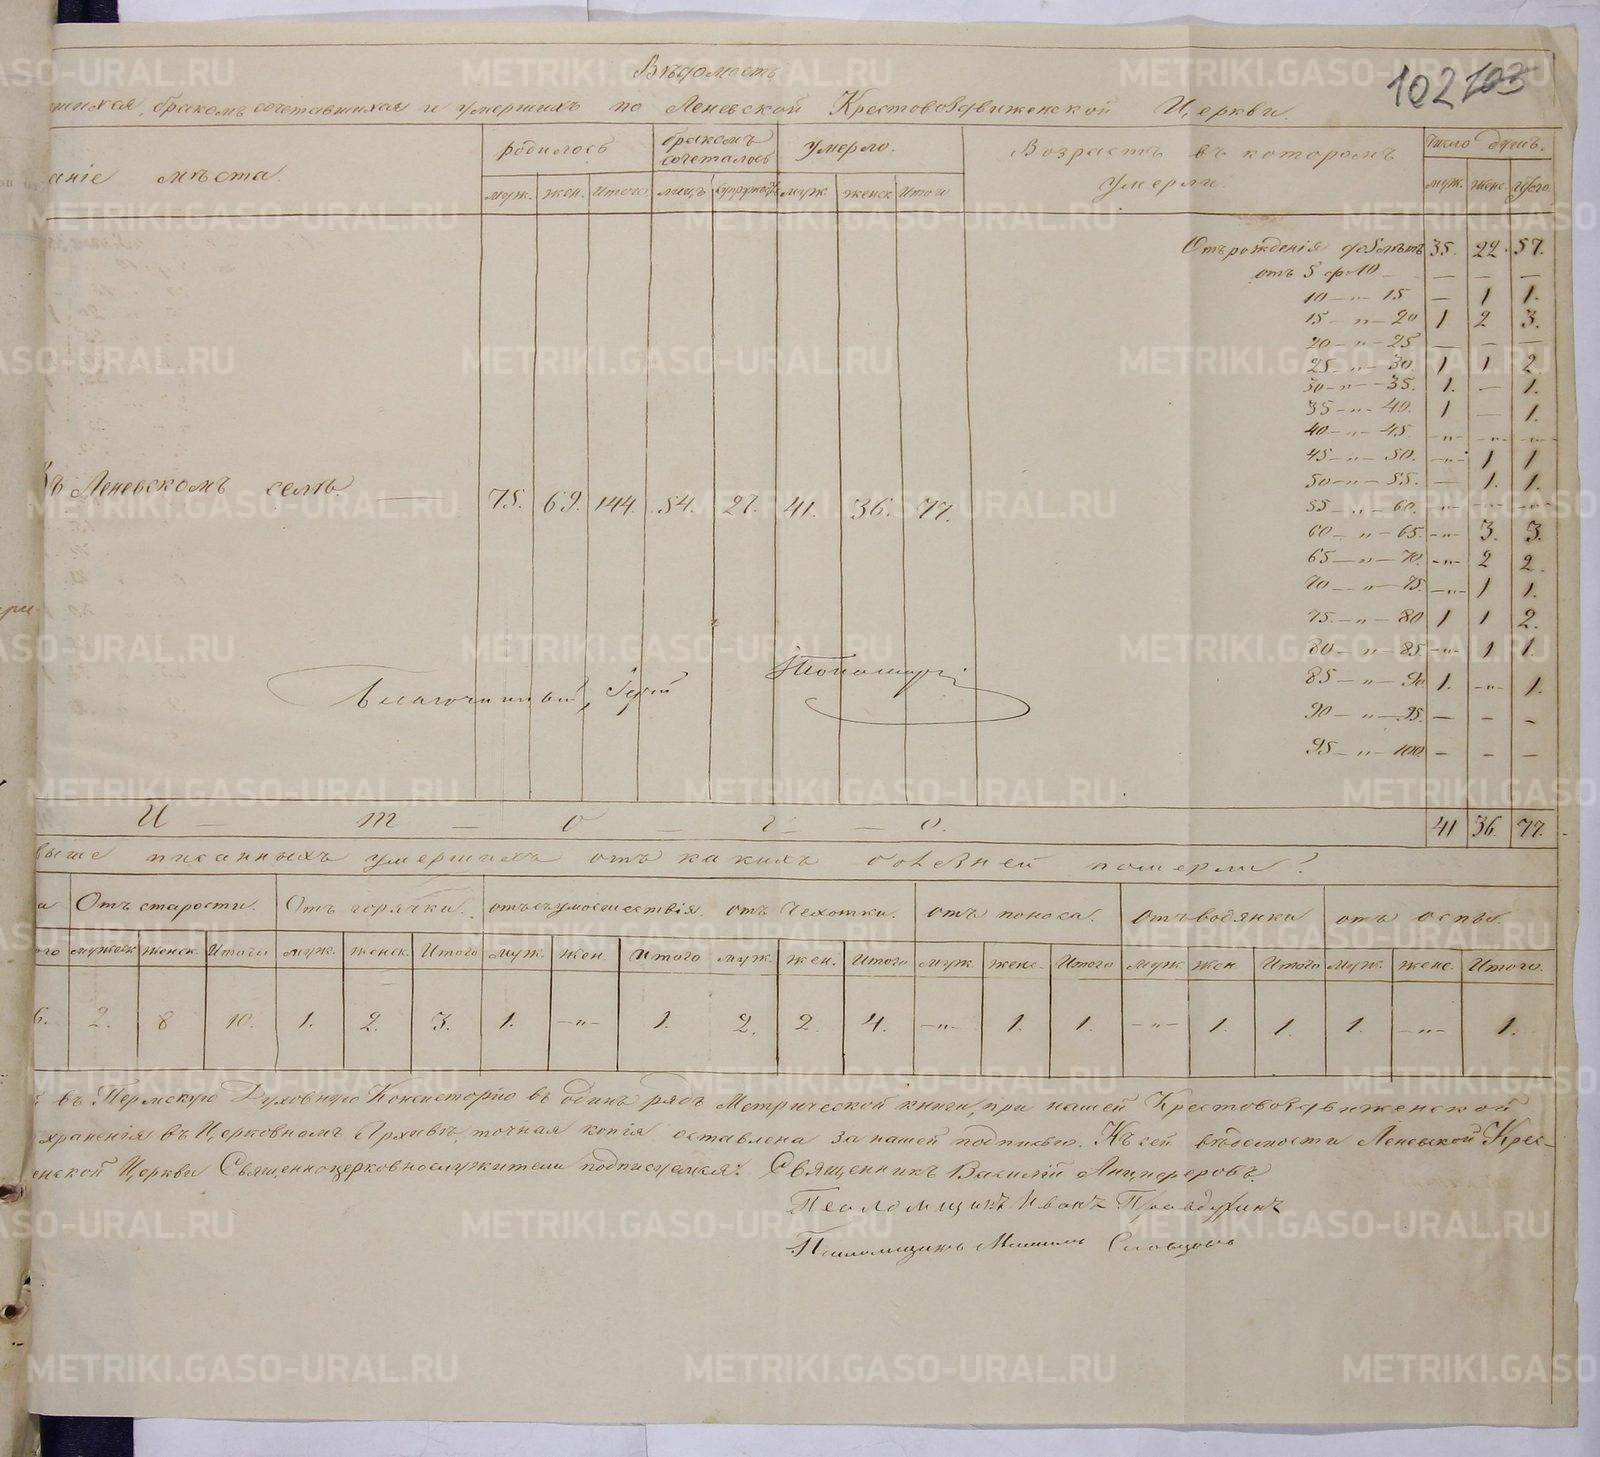 Вѣдомость
102 103
шихся, бракомъ сочетавшихся и умершихъ по Леневской Крестовоздвиженской Церкви.
аніе мѣста. родилось бракомъ сочеталось умерло. Возрастъ въ которомъ умерли. Число душъ.
муж. жен. Итого. лицъ супружеств муж женск Итого муж. женс. Итого.
Отъ рожденія до 5 лѣтъ 35. 22. 57.
отъ 5 до 10 — — — —
10 — „ — 15 — 1 1.
15 — „ — 20 1 2 3.
20 — „ — 25 — — —
25 — „ — 30. 1 1 2
30 — „ — 35. 1. — 1.
35 — „ — 40. 1 — 1.
40 — „ — 45. —„— —„— —„—
45 — „ — 50. —„— 1 1
50 — „ — 55. — 1. 1.
Въ Леневскомъ селѣ. — 75. 69. 144. 54. 27. 41. 36. 77.
55 — „ — 60. —„— —„— —„—
60 — „ — 65. —„— 3. 3.
65 — „ — 70. —„— 2 2.
70 — „ — 75. —„— 1 1.
75. — „ — 80 1 1 2.
80 — „ — 85. —„— 1 1.
85 — „ — 90 1. —„— 1.
Благочинный, Іерей Пономарев
90 — „ — 95. — — —
95 — „ — 100. — — —
И — т — о — г — о. 41 36. 77.
выше писанныхъ умершихъ отъ какихъ болѣзней померли?
а Отъ старости. Отъ горячки. отъ съумосшествія. отъ Чехотки. отъ поноса. отъ водянки отъ оспы.
ого мужеск женск. Итого муж. женск. Итого муж. жен. Итого муж. жен. Итого муж. женс. Итого муж жен. Итого муж. женс. Итого.
6. 2. 8 10. 1. 2. 3. 1. —„— 1. 2. 2. 4. —„— 1. 1. —„— 1. 1. 1. —„— 1.
въ Пермскую Духовную Консисторію въ одинъ рядъ Метрической книги, при нашей Крестовоздвиженской
хранения въ Церковномъ Архивѣ, точная копія оставлена за нашей подписью. Къ сей вѣдомости Леневской Крес-
енской Церкви Священноцерковнослужители подписуемся: Священникъ Василій Анциферовъ.
Псаломщикъ Иванъ Правдухинъ
Псаломщикъ Словцовъ
METRIKI.GASO-URAL.RU